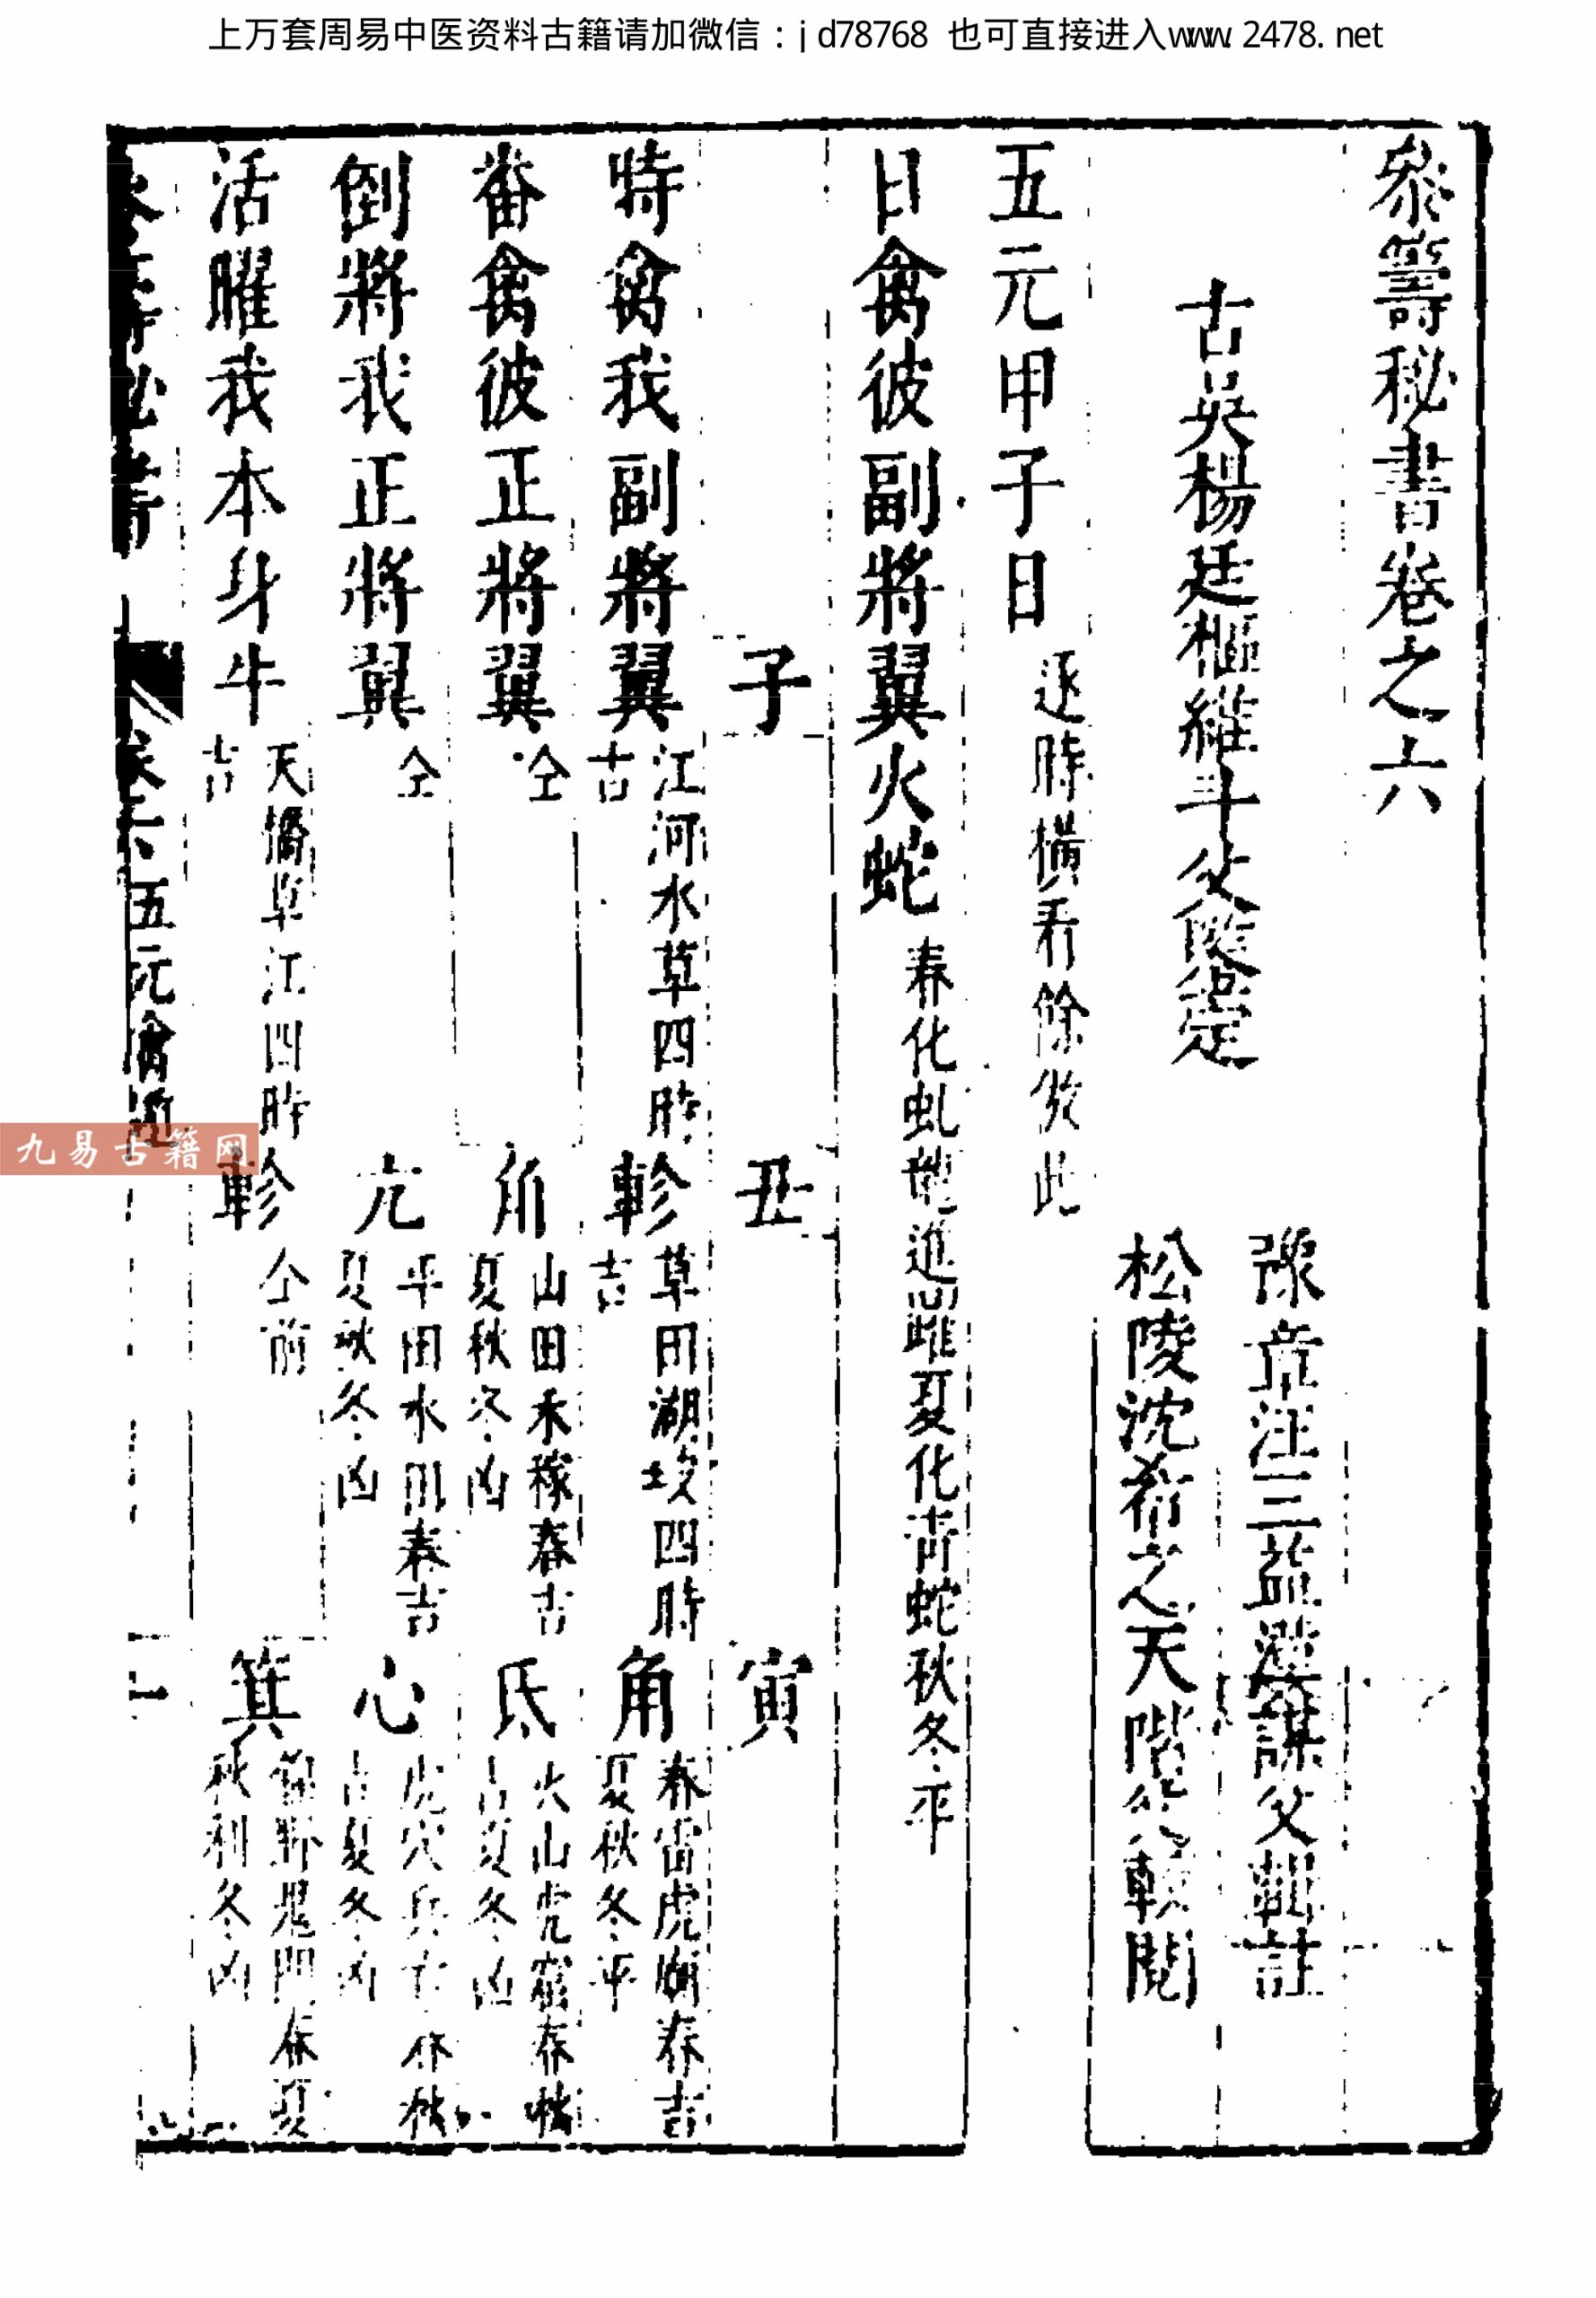 上万套周易中医资料古籍请加微信：jd78768 也可直接进入www.2478.net
叅籌秘書卷之六
古吳楊廷樞維斗父鑒定
豫章汪三益漢謀父輯註
松陵沈希之天階父較閱
五元甲子日 逐時橫看餘倣此
日禽彼副將翼火蛇 春化虬龍進 雌夏化青蛇秋冬平
子 丑 寅
時禽我副將翼 江河水草四時吉 軫 草田湖坟四時吉 角 春雷虎廟春吉夏秋冬平
番禽彼正將翼 仝 角 山田禾稼春吉夏秋冬凶 氐 火山虎窟春秋吉夏冬凶
倒將我正將翼 仝 亢 平田水川春吉夏秋冬凶 心 虎穴兵 春秋吉夏冬凶
活曜我本身牛 天橋草江四時吉 軫 仝前 箕 野鬼門春夏秋利冬凶
秘書 卷六 五元禽遁 一
九易古籍网